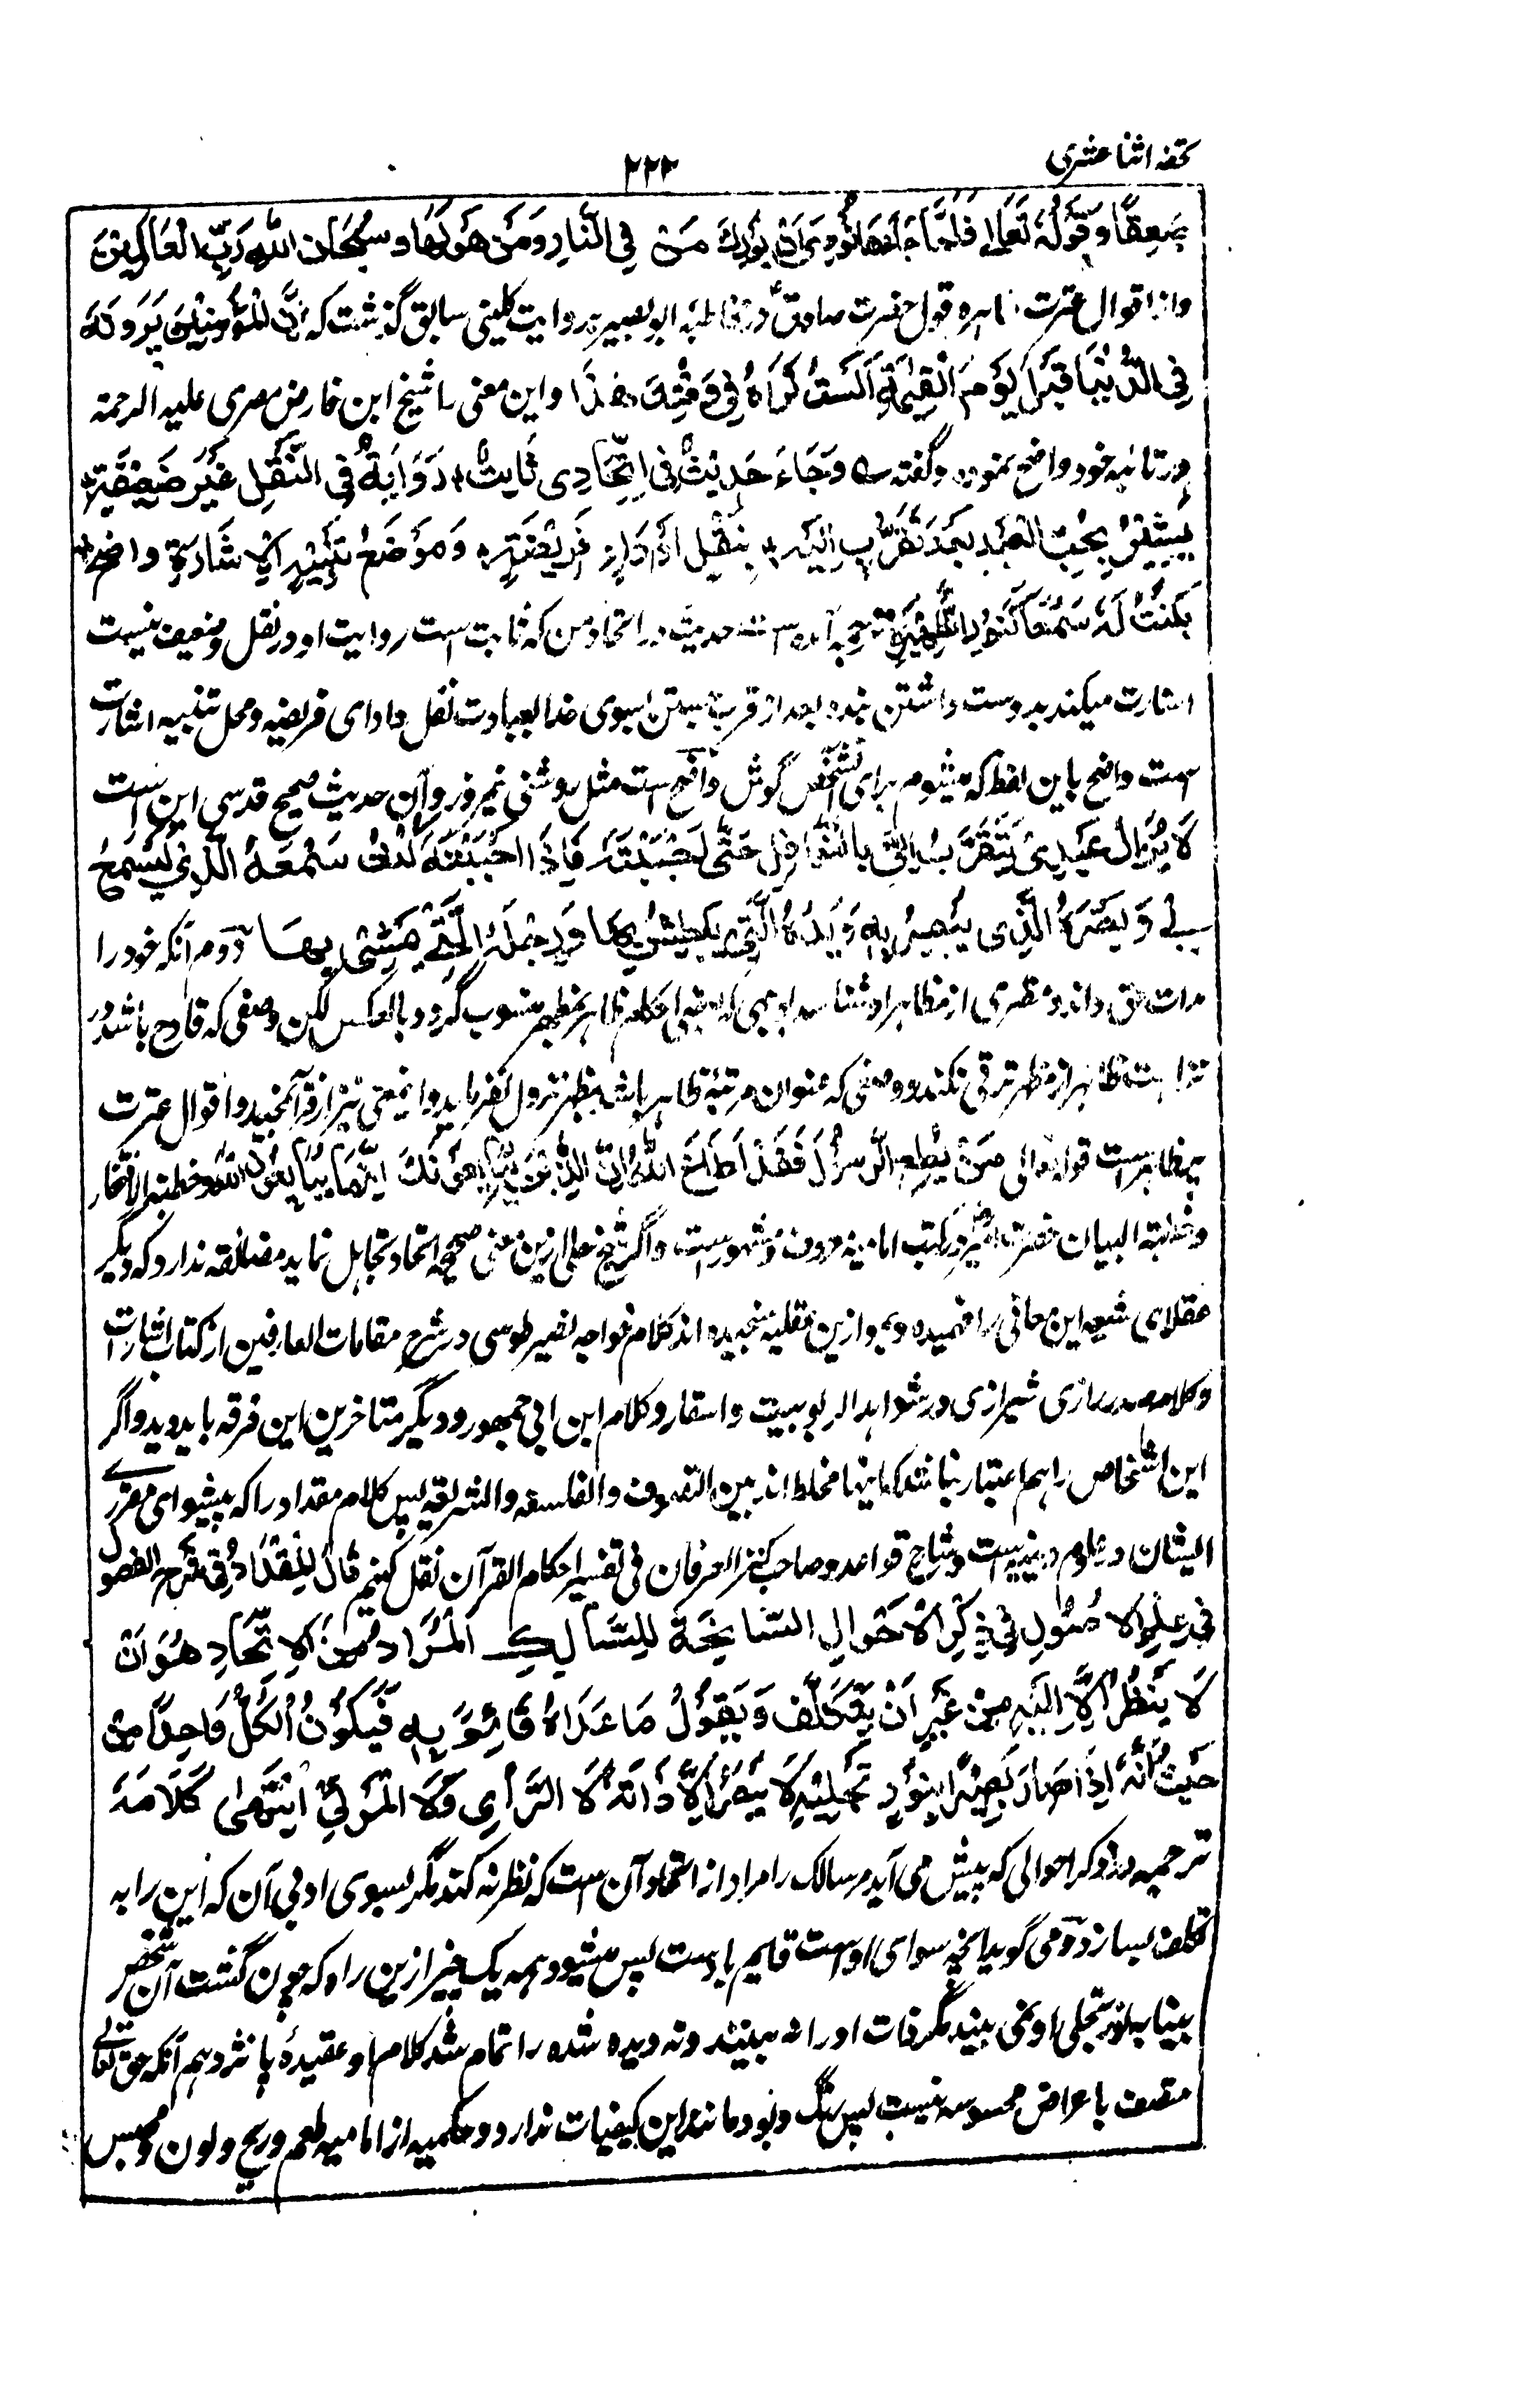 تحفه اثنا عشری
۲۲۲
صَعِقًا وَقَوْلُهٗ تَعَالٰی فَلَمَّا جَاءَهَا نُوْدِیَ اَنْ بُوْرِكَ مَنْ فِی النَّارِ وَمَنْ حَوْلَهَا وَسُبْحَانَ اللّٰهِ رَبِّ الْعَالَمِیْنَ
واز اقوال عترت طاهره قول حضرت صادقؑ در مخاطبه ابو بصیر بروایت کلینی سابق گذشت که اِنَّ الْمُؤْمِنِیْنَ یَرَوْنَهٗ
فِی الدُّنْیَا قَبْلَ یَوْمِ الْقِیٰمَةِ اَلَسْتُ تَرَاهُ فِیْ وَقْتِكَ هٰذَا واین معنی را شیخ ابن فارض مصری علیه الرحمة
در تائیه خود واضح نموده و گفته س وَجَاءَ حَدِیْثٌ فِی اتِّحَادِیْ ثَابِتٌ ٭ رَوَایَتُهٗ فِی النَّقْلِ غَیْرُ ضَعِیْفَةٍ ٭
یُشِیْرُ بِحُبِّ الْعَبْدِ بَعْدَ تَقَرُّبٍ اِلَیْهِ ٭ بِنَفْلٍ اَوْ اَدَاءِ فَرِیْضَةٍ ٭ وَمَوْضَعُ تَنْبِیْهِ الْاِشَارَةِ واضح ٭
بِكُنْتُ لَهٗ سَمْعًا كَنُوْرِ الظَّهِیْرَةِ ترجمه آمده است حدیث در اتحاد من که ثابت است روایت او در نقل ضعیف نیست
اشارت میکند بدوست داشتن بنده بعد از قرب جستن بسوی خدا بعبادت نفل و ادای فریضه و محل تنبیه اشارت
ست واضح باین لفظ که میشوم برای آنشخص گوش واضح ست مثل روشنی نیمروز و آن حدیث صحیح قدسی این است
لَا یَزَالُ عَبْدِیْ یَتَقَرَّبُ اِلَیَّ بِالنَّوَافِلِ حَتّٰی اَحْبَبْتُهٗ فَاِذَا اَحْبَبْتُهٗ كُنْتُ سَمْعَهُ الَّذِیْ یَسْمَعُ
بِهٖ وَبَصَرَهُ الَّذِیْ یُبْصِرُ بِهٖ وَیَدَهُ الَّتِیْ یَبْطِشُ بِهَا وَرِجْلَهُ الَّتِیْ یَمْشِیْ بِهَا دوم آنکه خود را
مرات حق داند و مظهری از مظاهر او شناسد بوجهی که بعضی احکام ظاهر بمظهر منسوب گردد و بالعکس لکن وصفی که قادح باشد در
نزاهت ظاهر از مظهر ترقی نکند و وصفی که عنوان مرتبه ظاهر باشد بمظهر نزول نفرماید و اینمعنی نیز از قرآن مجید و اقوال عترت
ظاهر است قوله تعالی مَنْ یُطِعِ الرَّسُوْلَ فَقَدْ اَطَاعَ اللّٰهَ اِنَّ الَّذِیْنَ یُبَایِعُوْنَكَ اِنَّمَا یُبَایِعُوْنَ اللّٰهَ و خطبة الافتخار
و خطبة البیان حضرت امیرؑ در کتب امامیه معروف و مشهور ست و اگر شیخ حلی ازین معنی صحیح اتحاد تجاهل نماید مضائقه ندارد که دیگر
عقلای شیعه این معانی را فهمیده و بموازین عقلیه سنجیده اند کلام خواجه نصیر طوسی در شرح مقامات العارفین از کتاب اشارات
و کلام صدر رازی شیرازی در شواهد الربوبیت و اسفار و کلام ابن ابی جمهور و دیگر متاخرین این فرقه باید دید و اگر
این اشخاص را هم اعتبار نباشد که اینها مخلط اند بین التصوف والفلسفه والشریعة پس کلام مقداد را که پیشوای مقرری
ایشان در علوم دینیه است و شارح قواعد و صاحب کنز العرفان فی تفسیر احکام القرآن نقل کنیم قَالَ الْمِقْدَادُ فِیْ شَرْحِ الفصول
فِیْ عِلْمِ الْاُصُوْلِ فِیْ ذِكْرِ الْاَحْوَالِ السَّانِحَةِ لِلسَّالِكِ اَلْمُرَادُ مِنَ الْاِتِّحَادِ هُوَ اَنْ
لَا یَنْظُرَ اِلَّا اِلَیْهِ مِنْ غَیْرِ اَنْ یَتَكَلَّفَ وَیَقُوْلُ مَا عَدَاهُ قَائِمٌ بِهٖ فَیَكُوْنُ الْكُلُّ وَاحِدًا مِنْ
حَیْثُ اَنَّهٗ اِذَا صَارَ بَصِیْرًا بِنُوْرِ تَجَلِّیْهِ لَا یُبْصِرُ اِلَّا ذَاتَهٗ لَا الرَّائِیْ وَلَا الْمَرْئِیَّ اِنْتَهٰی كَلَامُهٗ
ترجمه در ذکر احوالی که پیش می آید مر سالک را مراد از اتحاد آن ست که نظر نه کند مگر بسوی او بی آن که این را به
تکلف بسازد و می گوید آنچه سوای اوست قایم باوست پس میشود همه یک چیز ازین راه که چون گشت آن شخص
بینا بنور تجلی او نمی بیند مگر ذات او را نه بیننده و نه دیده شده را تمام شد کلام او عقیدهٔ پانزدهم آنکه حق تعالی
متصف باعراض محسوسه نیست پس رنگ و بو و مانند این کیفیات ندارد و حکمیه از امامیه طعم و ریح و لون و مجس